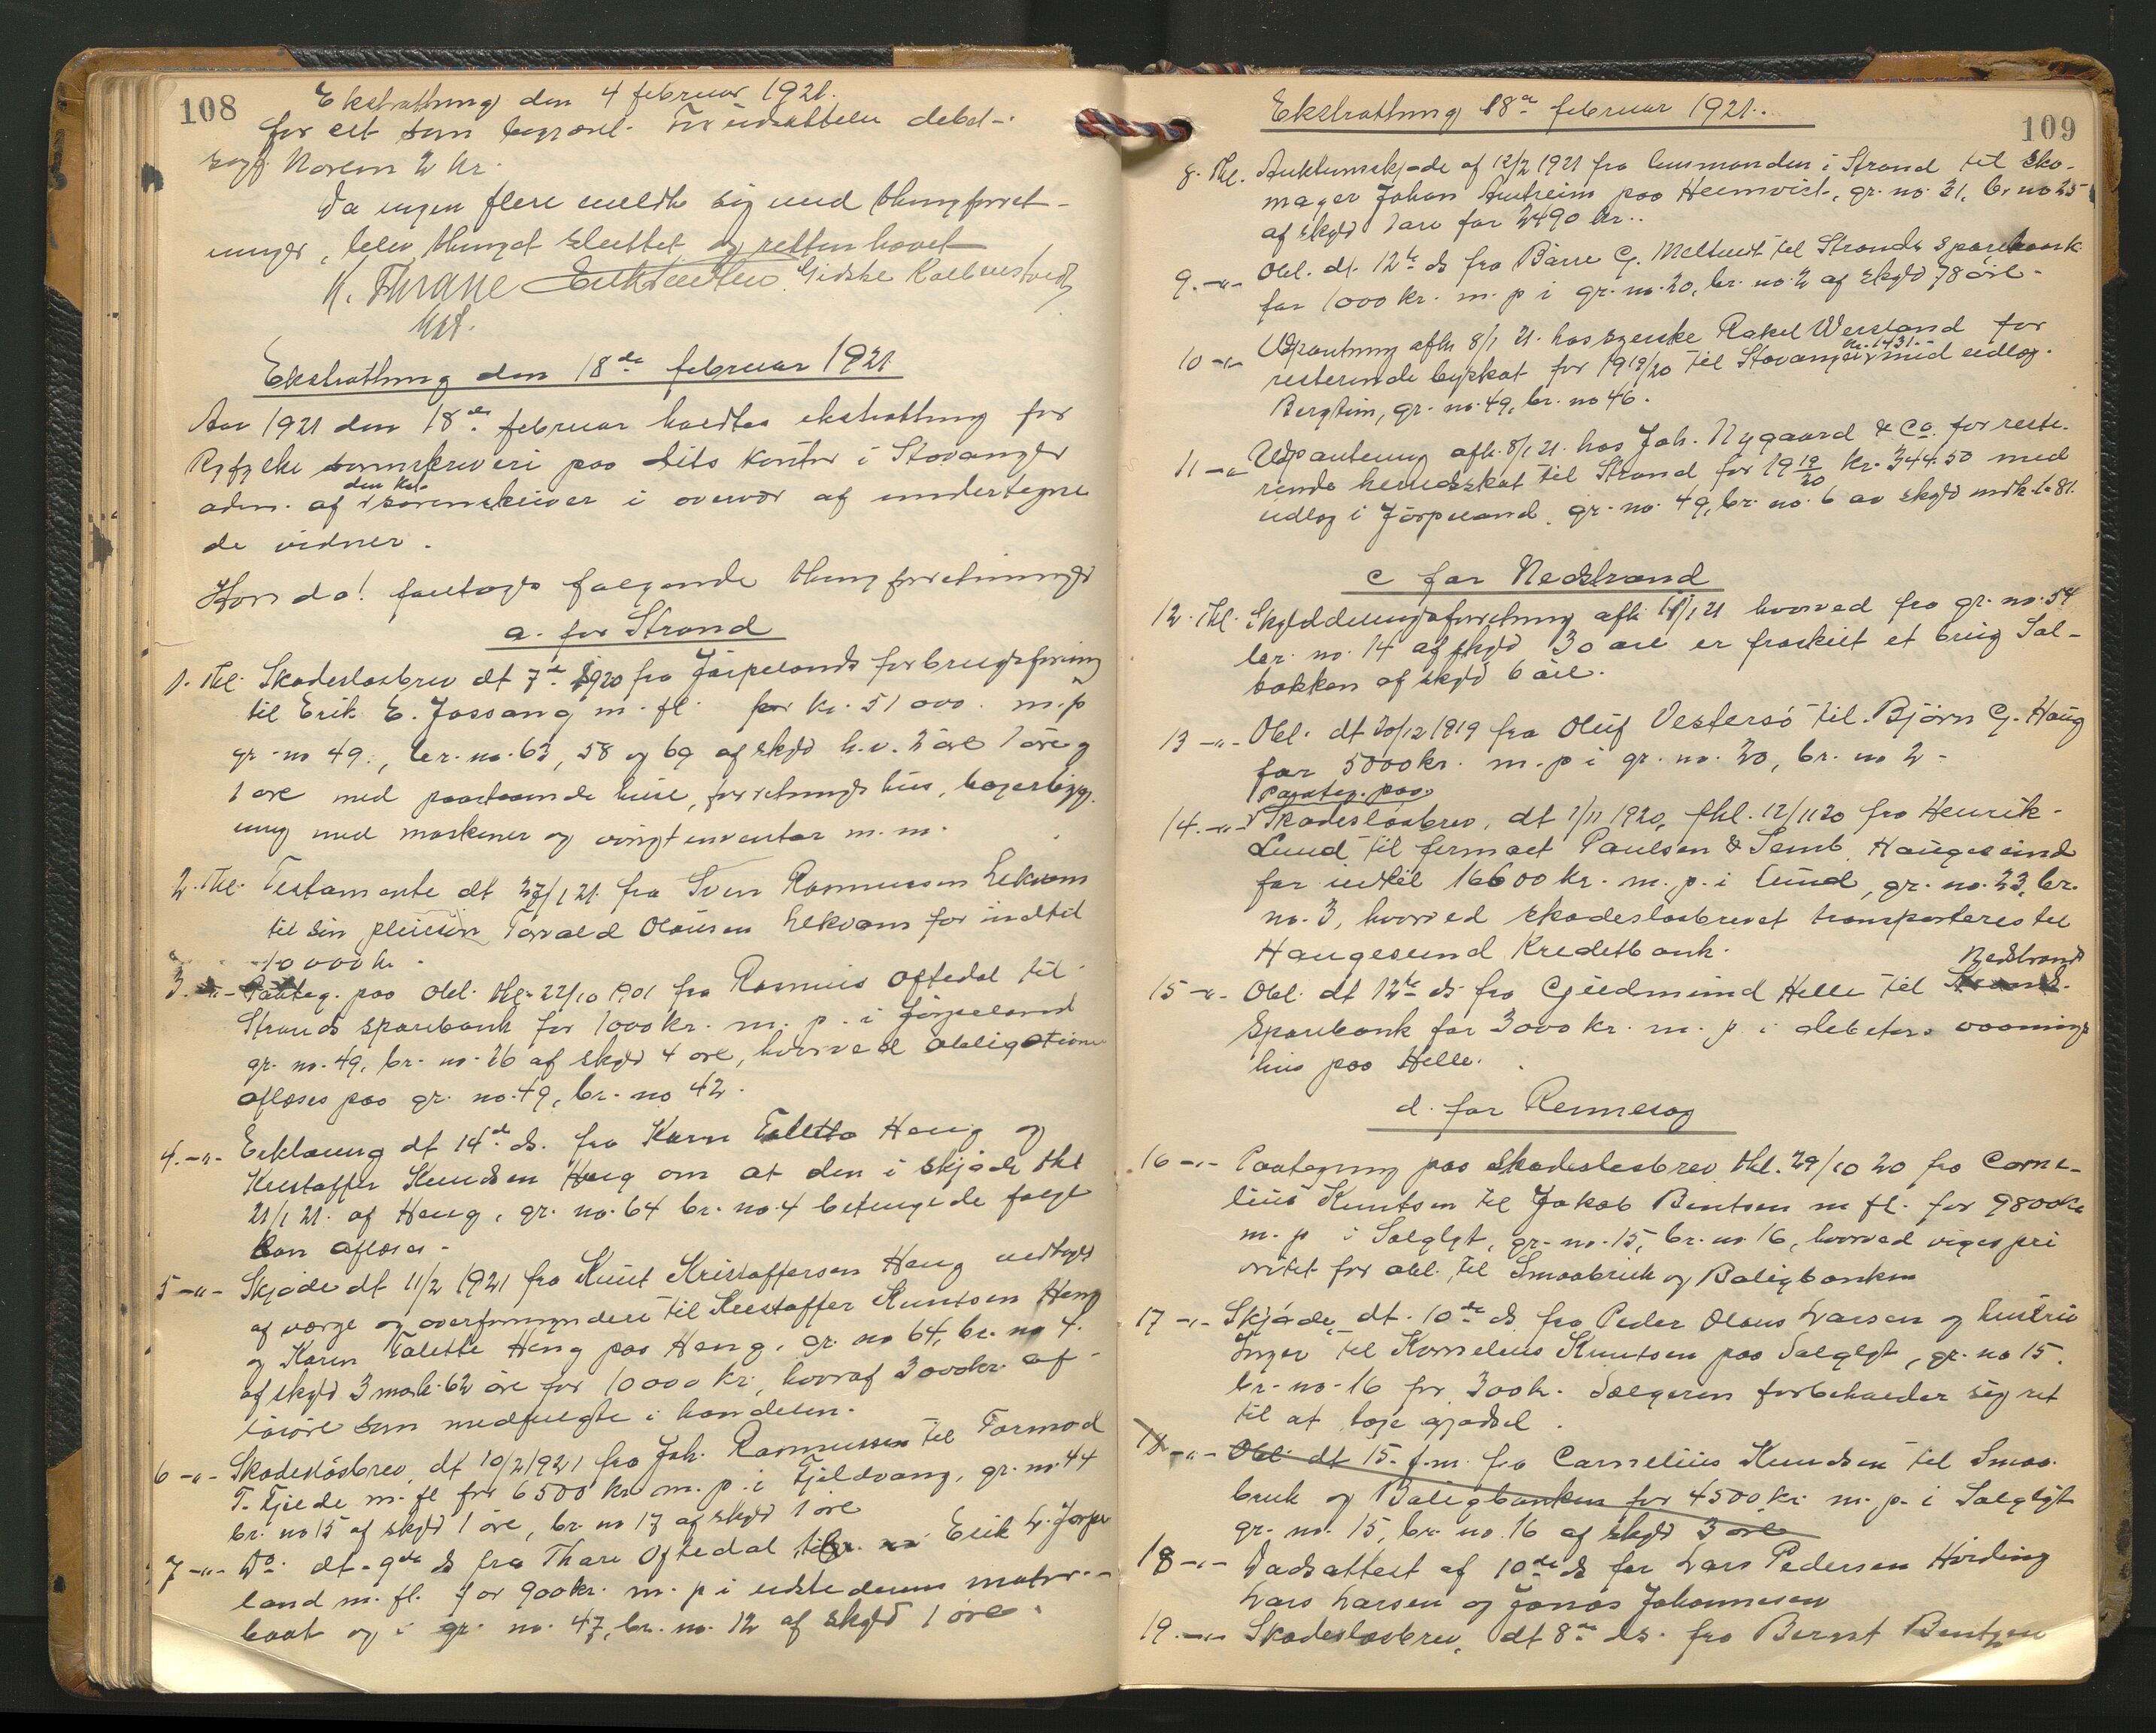 108
Ekstrathing den 4 februar 1921.
for elt som
Norem 2 kr.
Da ingen flere meldte sig med thingforret-
ninger, blev thinget sluttet og retten hævet
K. Thrane Gidske
Kst.
Ekstrathing den 18de februar 1921
Aar 1921 den 18de februar holdtes ekstrathing for
Ryfylke sorenskriveri paa dets kontor i Stavanger
adm. af den kst. sorenskriver i overvær af undertegne
de vidner.
Hvor da! foretoges følgende thingforretninger
a. for Strand
1. Thl. Skadesløsbrev dt 7de 1920 fra Jørpelands forbrugsforening
til Erik E. Jøssang m. fl. for kr. 51000. m. p
gr. no 49., br. no. 63, 58 og 69 af skyld h.v. 2 øre 1 øre og
1 øre med paastaaende huse, forretningshus, bageribygg.
ning med maskiner og øvrigt inventar m. m.
2. Thl. Testamente dt 27/1 21. fra Sven Rasmussen Lekvam
til sin pleiesøn Torvald Olausen Lekvam for indtil
10000 kr.
3. -"- Paateg. paa Obl. thl. 22/10 1901 fra Rasmus Oftedal til
Strands sparebank for 1000 kr. m. p. i Jørpeland
gr. no. 49, br. no. 26 af skyld 4 øre, hvorved obligationen
afløses paa gr. no. 49, br. no 42.
4. -"- Erklæring dt 14de ds. fra Karen Talette Heng og
Kristoffer Knudsen Heng om at den i skjøde thl
21/1 21. af Heng, gr. no. 64 br. no. 4 betingede følge
kan afløses.
5 -"- Skjøde dt 11/2 1921 fra Knut Kristoffersen Heng vedtaget
af værge og overformyndere til Kristoffer Knutsen Heng
og Karen Talette Heng paa Heng, gr. no 64, br. no 4.
af skyld 3 mark 62 øre for 10000 kr, hvoraf 3000 kr. af
løsøre som medfulgte i handelen.
6 -"- Skadesløsbrev, dt 10/2 1921 fra Joh. Rasmussen til Tormod
T. Fjelde m. fl for 6500 kr m. p. i Fjeldvang, gr. no. 44
br. no 15 af skyld 1 øre, br. no 17 af skyld 1 øre
7 -"- Do. dt. 9de ds fra Thore Oftedal til Erik L. Jørpe
land m. fl. for 900 kr. m. p i udstederens motor-
baat og i gr. no. 47, br. no. 12 af skyld 1 øre.
Ekstrathing 18de februar 1921.
109
8. Thl. Auktionsskjøde af 12/2 1921 fra lensmanden i Strand til sko-
mager Johan Autreim paa Heimvist, gr. no. 21, br. no 25
af skyld 1 øre for 2490 kr.
9. -"- Obl. dt. 12te ds fra Børre G. Meltveit til Strands sparebank
for 1000 kr. m. p i gr. no. 20, br. no. 2 af skyld 78 øre.
10 -"- Udpantning afh 8/1 21. hos syerske Rakel Wersland for
resterende byskat for 1919/20 til Stavanger kr. 1431.- med udlæg.
Bergtun, gr. no. 49, br. no 46.
11 -"- Udpantning afh. 8/1 21. hos Joh. Nygaard & Co. for reste-
rende herredsskat til Strand for 19 19/20 kr. 344.50 med
udlæg i Jørpeland, gr. no. 49, br. no. 6 av skyld mrk. 1.81.
c for Nedstrand
12. Thl. Skylddelingsforretning afh. 11/1 21 hvorved fra gr. no. 54
br. no. 14 af skyld 30 øre er fraskilt et brug Sol-
bakken af skyld 6 øre.
13 -"- Obl. dt 20/12 1919 fra Oluf Vestersø til Bjørn G. Haug
for 5000 kr. m. p i gr. no. 20, br. no 2.
Paateg. paa
14. -"- Skadesløsbrev, dt 1/11 1920, thl. 12/11 20 fra Henrik
Lund til firmaet Paulsen & Semb, Haugesund
for indtil 16600 kr. m. p. i Lund, gr. no. 23, br.
no. 3, hvorved skadesløsbrevet transporteres til
Haugesund Kreditbank.
Nedstrands
15 -"- Obl. dt 12te ds fra Gudmund Helle til Strands
Sparebank for 3000 kr. m. p. i debitors vaanings
hus paa Helle.
d. for Rennesøy
16 -"- Paategning paa skadesløsbrev thl. 29/10 20 fra Corne-
lius Knutsen til Jakob Bentsen m fl. for 9800 kr
m. p i Salglyt, gr. no. 15, br. no 16, hvorved viges pri
oritet for obl. til Smaabruk og Boligbanken
17 -"- Skjøde, dt. 10de ds fra Peder Olaus Larsen og hustru
Inger til Kornelius Knutsen paa Salglyt, gr. no 15,
br. no. 16 for 300 kr. Sælgeren forbeholder sig ret
til at tage gjødsel.
18 -"- Obl. dt 15. f.m. fra Cornelius Knudsen til Smaa-
bruk og Boligbanken for 4500 kr. m. p. i Salglyt
gr. no. 15, br. no. 16 af skyld 3 øre
18 -"- Dødsattest af 10de ds for Lars Pedersen Hording
Lars Larsen og Jonas Johannesen
19. -"- Skadesløsbrev, dt 8de ds. fra Bernt Bentzen